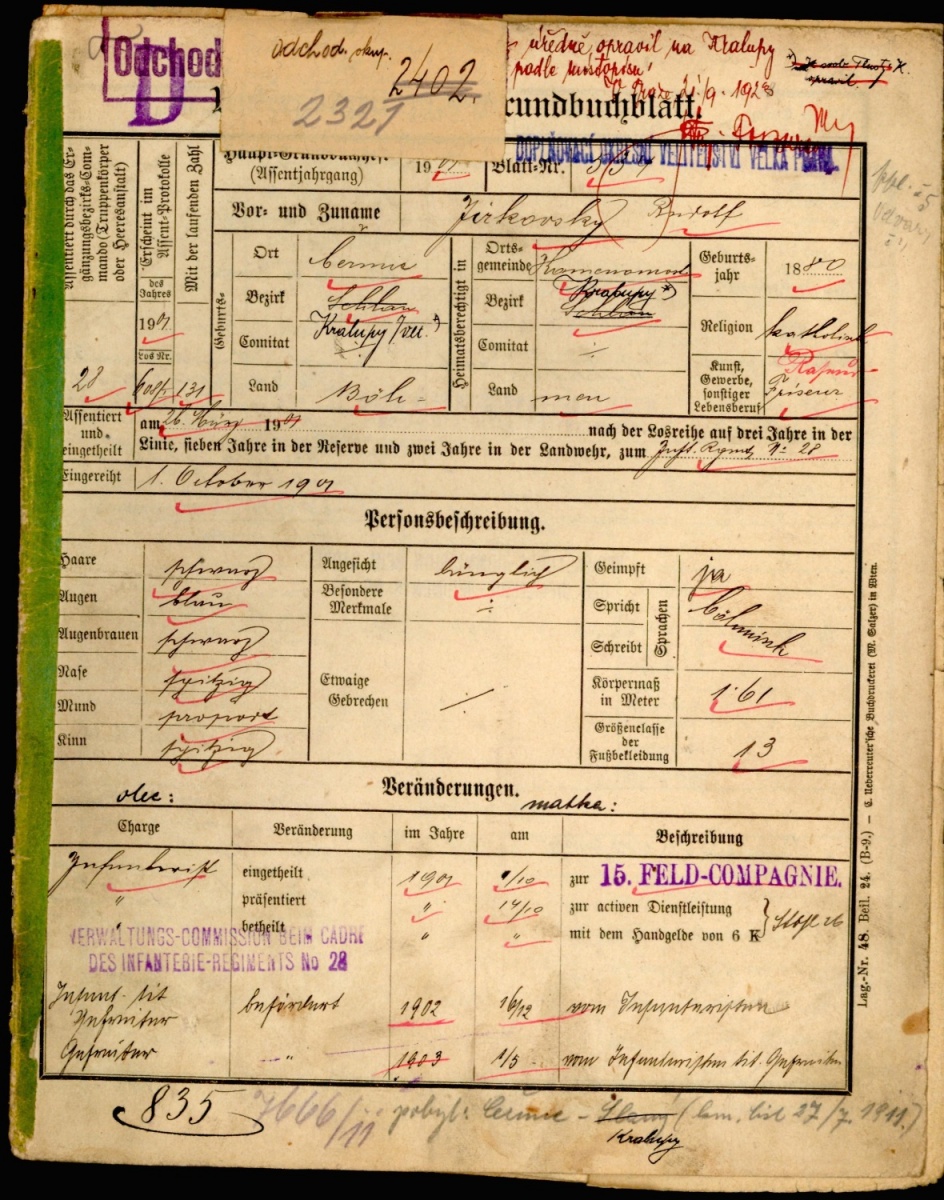 Odchod
D
odchod. skup.
2402.
2327
úředně opravil na Kralupy
podle místopisu
V Praze 21/9. 1928
Grundbuchblatt.
DOPLŇOVACÍ OKRESNÍ VELITELSTVÍ VELKÁ PRAHA.
Assentiert durch das Er-
gänzungsbezirks-Com-
mando (Truppenkörper
oder Heeresanstalt)
28
Erscheint im
Assent-Protokolle
des
Jahres
1901
Los Nr.
Mit der laufenden Zahl
131
Haupt-Grundbuchheft
(Assentjahrgang)
1901
Blatt-Nr.
Vor- und Zuname
Jirkovský Rudolf
Geburts-
Ort
Černuc
Bezirk
Schlan
Kralupy /vlt.
Comitat
Land
Böh-
Heimatsberechtigt in
Orts-
gemeinde
Kamenomost
Bezirk
Kralupy *)
Schlan
Comitat
Land
men
Geburts-
jahr
1880
Religion
katholisch
Kunst,
Gewerbe,
sonstiger
Lebensberuf
Friseur
Assentiert
und
eingetheilt
am 26. März 1901 nach der Losreihe auf drei Jahre in der
Linie, sieben Jahre in der Reserve und zwei Jahre in der Landwehr, zum Inft. Rgmt Nº 28
Eingereiht
1. October 1901
Personsbeschreibung.
Haare
schwarz
Augen
blau
Augenbrauen
schwarz
Nase
spitzig
Mund
proport
Kinn
spitzig
Angesicht
länglich
Besondere
Merkmale
Etwaige
Gebrechen
Geimpft
ja
Spricht
Schreibt
Sprachen
böhmisch
Körpermaß
in Meter
1·61
Größenclasse
der
Fußbekleidung
13
Veränderungen.
otec:
matka:
Charge
Veränderung
im Jahre
am
Beschreibung
Infanterist
eingetheilt
1901
1/10
zur
15. FELD-COMPAGNIE.
"
präsentiert
"
14/10
zur activen Dienstleistung
"
betheilt
"
"
mit dem Handgelde von 6 K
VERWALTUNGS-COMMISSION BEIM CADRE
DES INFANTERIE-REGIMENTS No 28
Infant. tit
Gefreiter
befördert
1902
16/12
vom Infanteristen
Gefreiter
"
1903
1/5
vom Infanteristen tit. Gefreiten
835
7666/11
pobyt: Černuc - Slaný
Kralupy
27/7. 1911.)
Lag.-Nr. 48. Beil. 24. (B-9.) — C. Ueberreuter'sche Buchdruckerei (M. Salzer) in Wien.